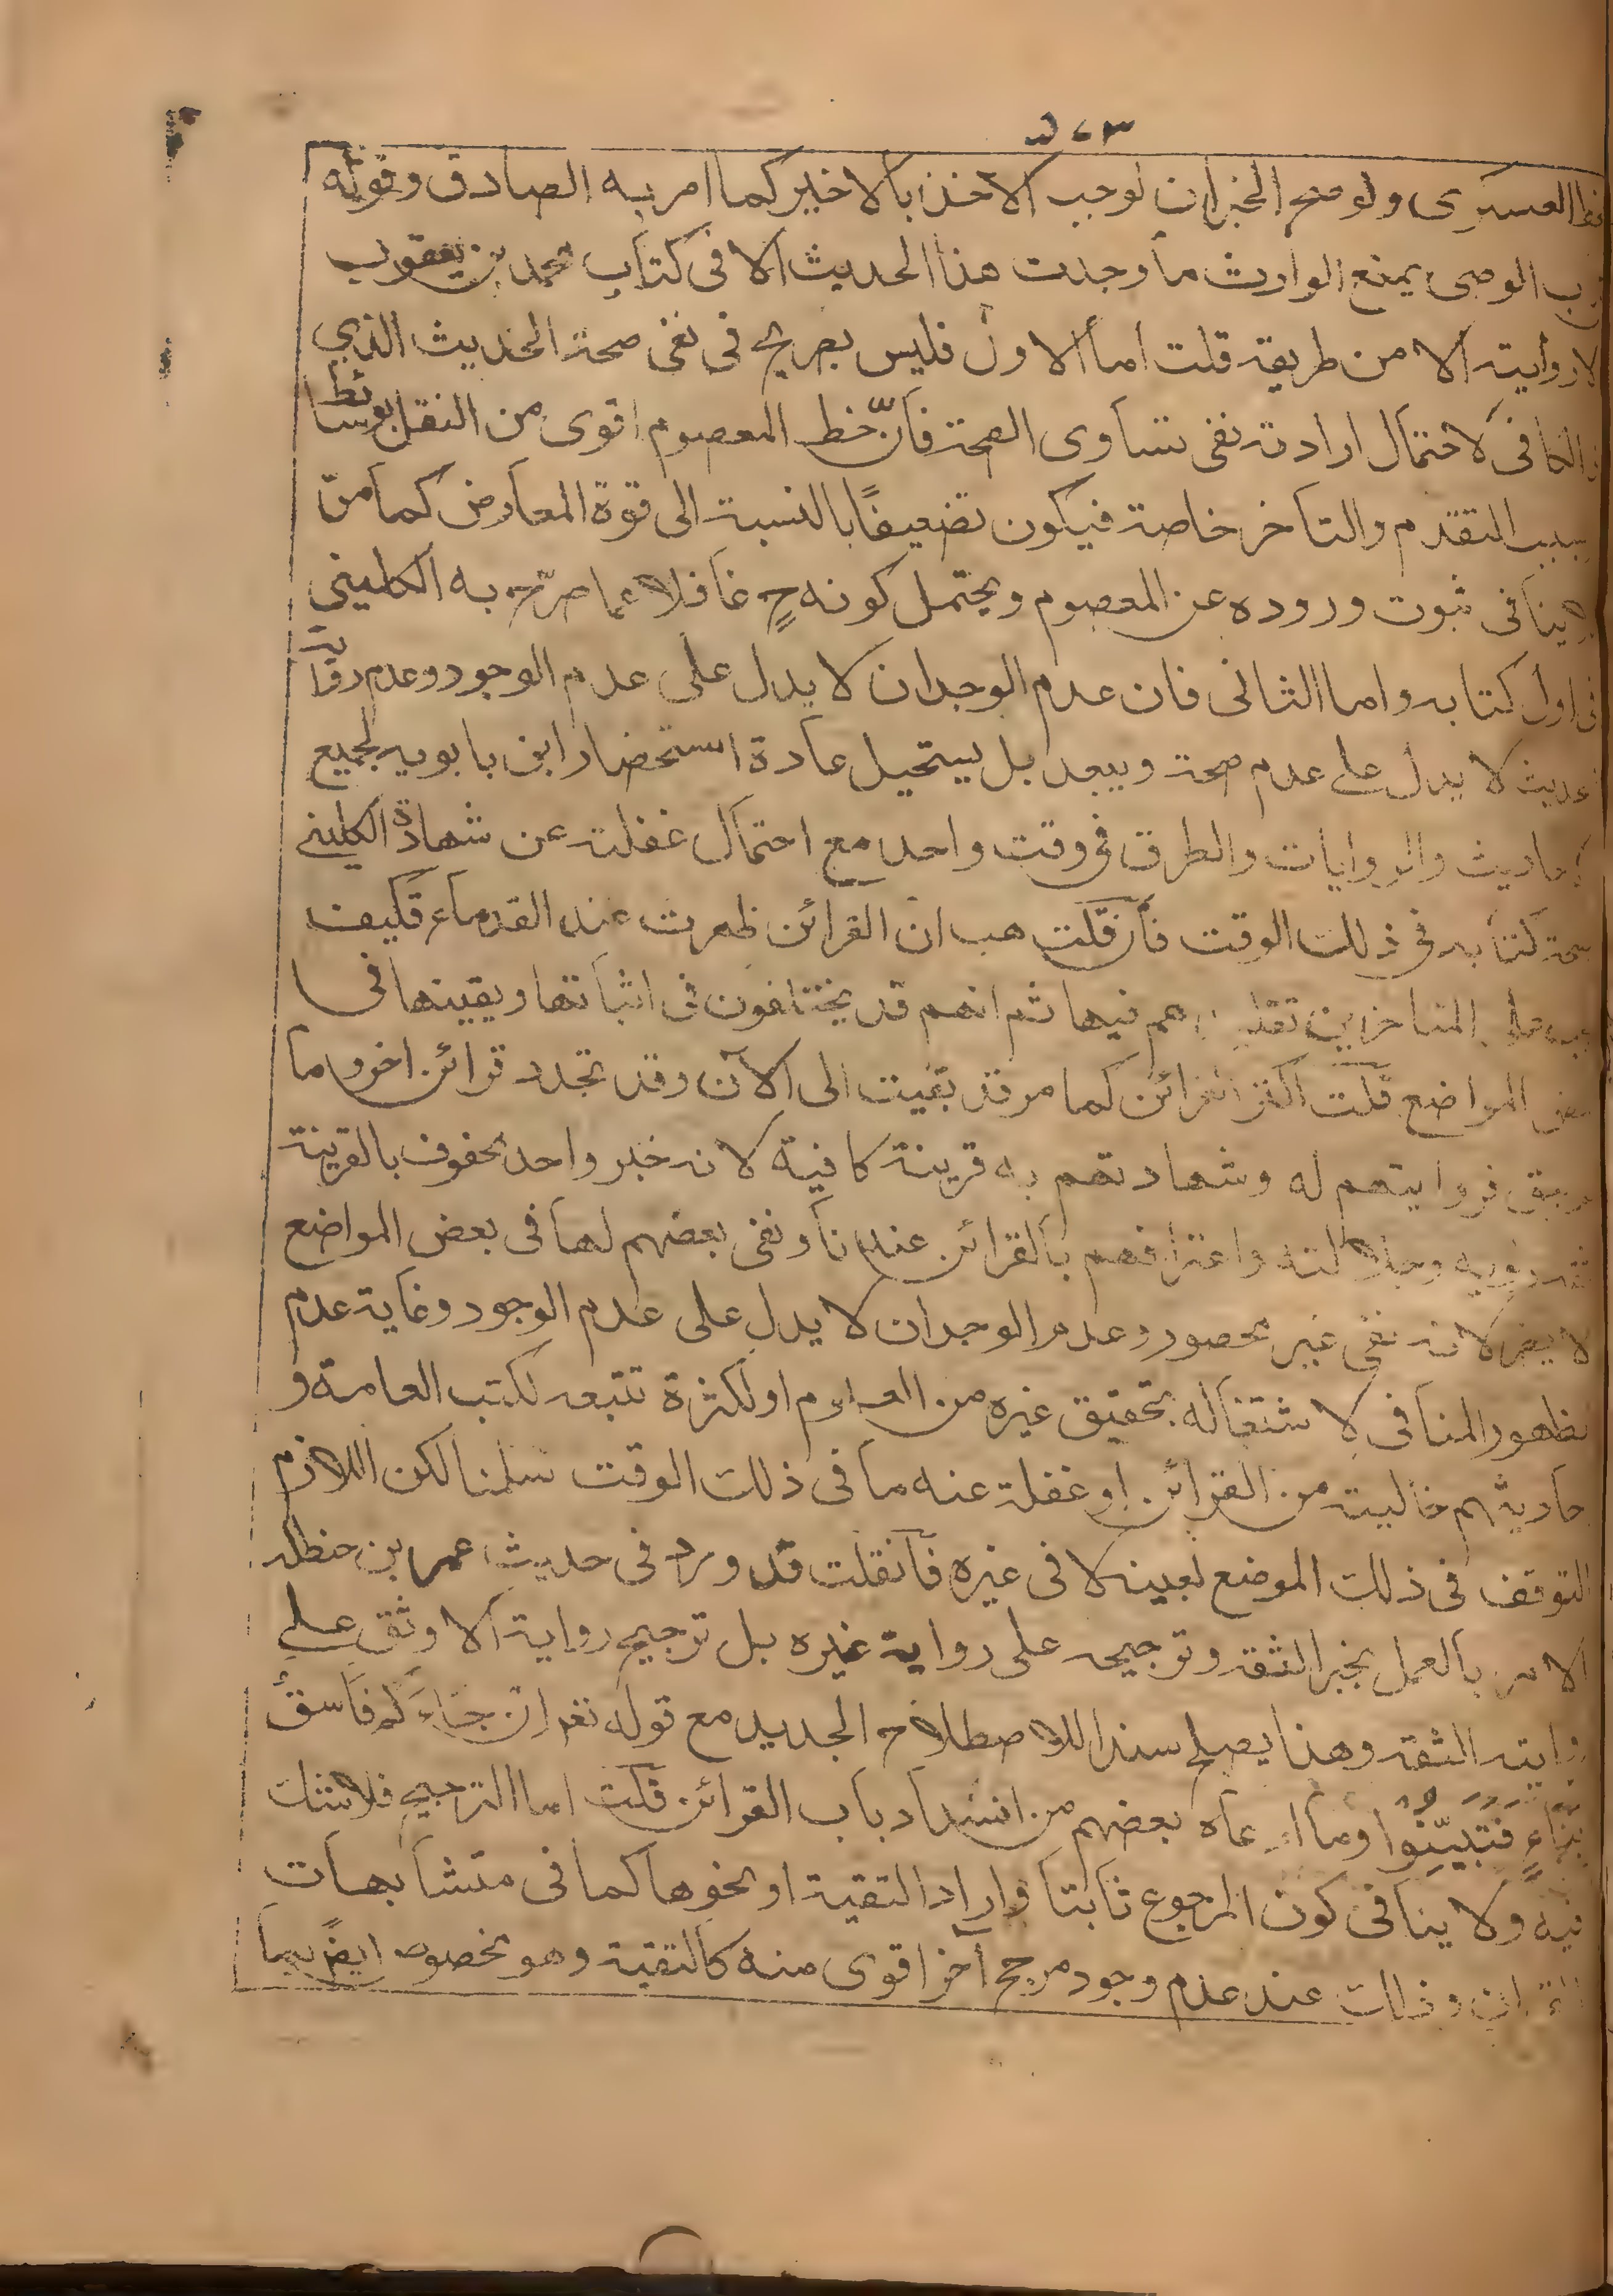 العسكرى ولو صح الخبران لوجب الاخذ بالاخير كما امر به الصادق وقوله
باب الوصى يمنع الوارث ما وجدت هذا الحديث الا فى كتاب محمد بن يعقوب
لا روايته الا من طريقه قلت اما الاول فليس بصريح فى نفى صحة الحديث الذى
الكافى لاحتمال ارادته نفى تساوى الصحة فانّ خط المعصوم اقوى من النقل بوسائط
بسبب التقدم والتاخر خاصة فيكون تضعيفًا بالنسبة الى قوة المعارض كما مرّ
لا ينافى ثبوت وروده عن المعصوم ويحتمل كونه ح غافلا عما صرّح به الكلينى
فى اول كتابه واما الثانى فان عدم الوجدان لا يدل على عدم الوجود وعدم رواية
حديث لا يدل على عدم صحته ويبعد بل يستحيل عادة استحضار ابن بابويه لجميع
احاديث والروايات والطرق فى وقت واحد مع احتمال غفلته عن شهادة الكلينى
صحة كتابه فى ذلك الوقت فان قلت هب ان القرائن ظهرت عند القدماء فكيف
يجب على المتاخرين تقليدهم فيها ثم انهم قد يختلفون فى اثباتها ويقينها فى
بعض المواضع قلت اكثر القرائن كما مر قد بقيت الى الآن وقد تجدد قرائن اخر وما
فروايتهم له وشهادتهم به قرينة كافية لانه خبر واحد محفوف بالقرينة
وجلالته واعترافهم بالقرائن عندنا ونفى بعضهم لها فى بعض المواضع
لا يضر لانه نفى غير محصور وعدم الوجدان لا يدل على عدم الوجود وغاية عدم
ظهور المنافى لاشتغاله بتحقيق غيره من العلوم او لكثرة تتبعه لكتب العامة و
احاديثهم خالية من القرائن او غفلة عنه ما فى ذلك الوقت سلمنا لكن اللازم
التوقف فى ذلك الموضع بعينه لا فى غيره فان قلت قد ورد فى حديث عمر بن حنظلة
الامر بالعمل بخبر الثقة وترجيحه على رواية غيره بل ترجيح رواية الاوثق على
رواية الثقة وهذا يصلح سندا للاصطلاح الجديد مع قوله تعم اِن جَاءَكُم فَاسقٌ
بِنَبَاءٍ فَتَبَيَّنُوا وما ادعاه بعضهم من انسداد باب القرائن قلت اما الترجيح فلا شك
فيه ولا ينافى كون المرجوع ثابتا واراد التقية او نحوها كما فى متشابهات
القران وذلك عند عدم وجود مرجح آخر اقوى منه كالتقية وهو مخصوص ايضً بما